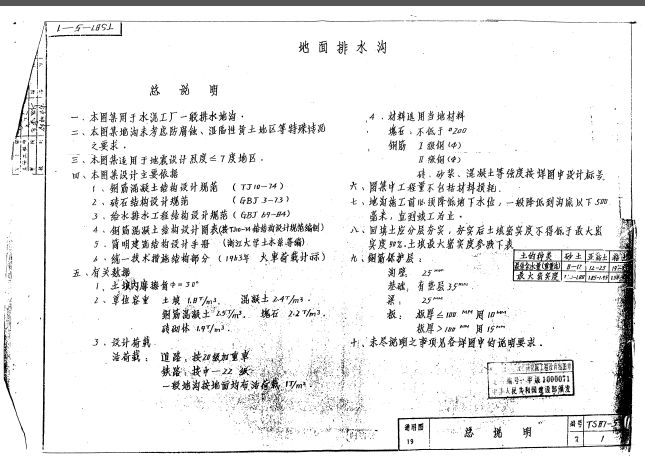 TSB7-5-1
地面排水沟
总说明
一．本图集用于水泥工厂一般排水地沟．
二．本图地沟未考虑防腐蚀、湿陷性黄土地区等特殊情况
之要求．
三．本图集适用于地震设计烈度≤7度地区．
四．本图集设计主要依据
1、钢筋混凝土结构设计规范 （TJ10-74）
2、砖石结构设计规范 （GBJ 3-73）
3、给水排水工程结构设计规范（GBJ 69-84）
4、钢筋混凝土结构设计图表（按TJ10-74结构设计规范编制）
5、简明建筑结构设计手册 （浙江大学土木系等编）
6、统一技术措施结构部分 （1963年
五、有关数据
1、土壤内摩擦角φ=30°
2、单位容重 土壤 1.8T/m³． 混凝土 2.4T/m³．
钢筋混凝土 2.5T/m³． 块石 2.2T/m³．
砖砌体 1.9T/m³．
3、设计荷载
活荷载： 道路．按20级加重车
铁路：按中-22级
一般地沟按地面均布活荷载 1T/m²
4．材料选用当地材料
块石：不低于#200
钢筋 Ⅰ级钢(φ)
Ⅱ级钢(φ)
砖．砂浆、混凝土等强度按详图中设计标号
六、图集中工程量不包括材料损耗．
七、地沟施工前必须降低地下水位，一般降低到沟底以下500
毫米，直到竣工为止．
八、回填土应分层夯实，夯实后土壤密实度不得低于最大密
实度90%．土壤最大密实度参照下表
土的种类 砂土 亚砂土
最大密实度
九、钢筋保护层：
沟壁． 25mm
基础．有垫层35mm
梁： 25mm
板： 板厚≤100mm 用10mm
板厚>100mm 用15mm
十、未尽说明之事项见各详图中的说明要求．
中华人民共和国建设部颁发
通用图
19
总说明
图号 TSB7-5
1